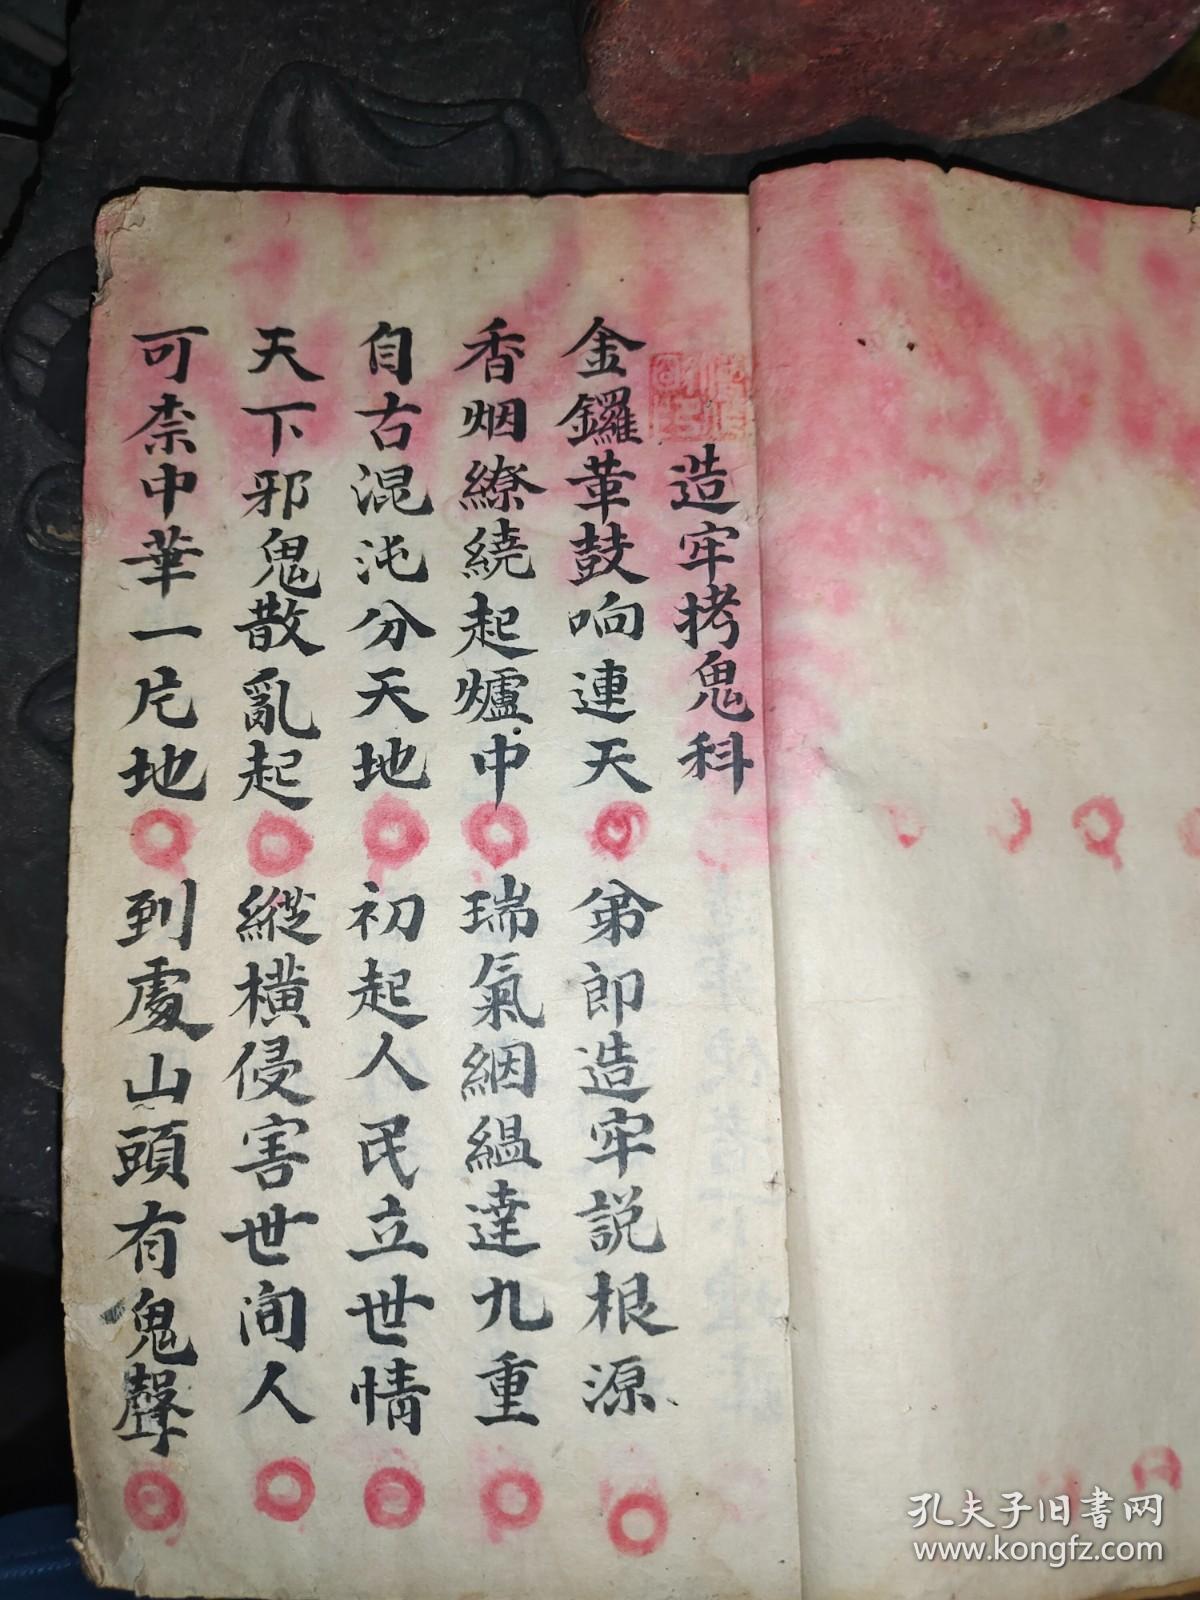 造牢拷鬼科
金鑼革鼓响連天 弟即造牢説根源
香烟繚繞起爐中 瑞氣絪緼達九重
自古混沌分天地 初起人民立世情
天下邪鬼散亂起 縱橫侵害世间人
可柰中華一片地 到處山頭有鬼聲
孔夫子旧书网
www.kongfz.com